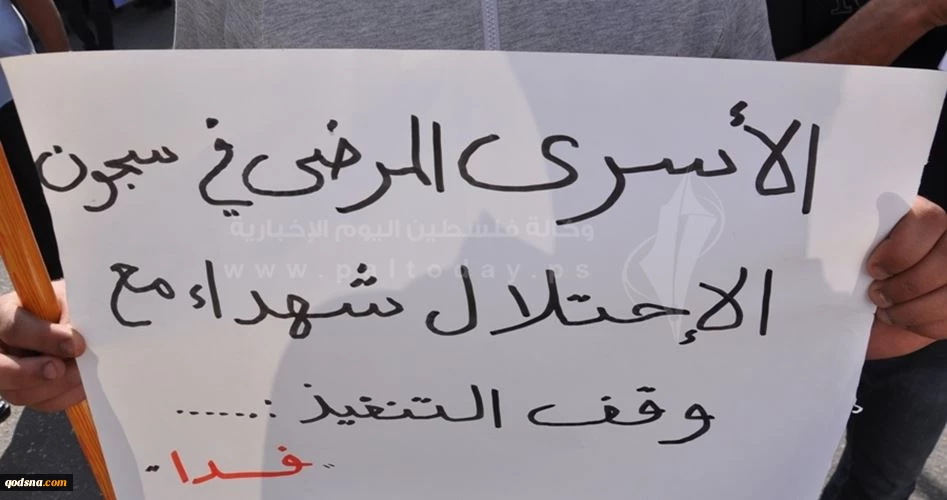 الأسرى المرضى في سجون
وكالة فلسطين اليوم الإخبارية
www.paltoday.ps
الإحتلال شهداء مع
وقف التنفيذ :......
"فدا"
qodsna.com